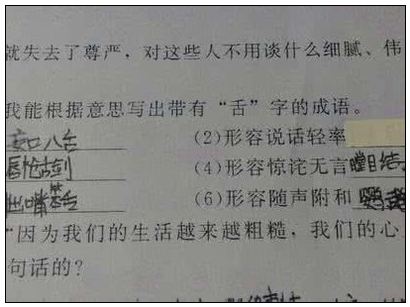 就失去了尊严，对这些人不用谈什么细腻、伟
我能根据意思写出带有“舌”字的成语。
(2)形容说话轻率
唇枪舌剑 (4)形容惊诧无言 瞠目结
(6)形容随声附和
“因为我们的生活越来越粗糙，我们的心
句话的？